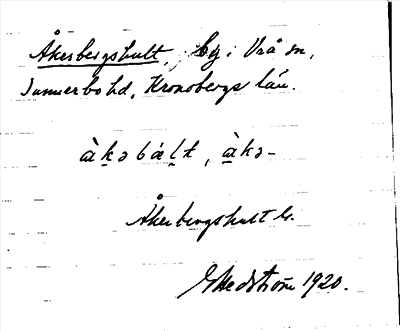 Åkerbergshult, by i Vrå sn,
Sunnerbo hd, Kronobergs län.
àkəbált, àkə-
Åkerbergshult G.
G Hedström 1920.